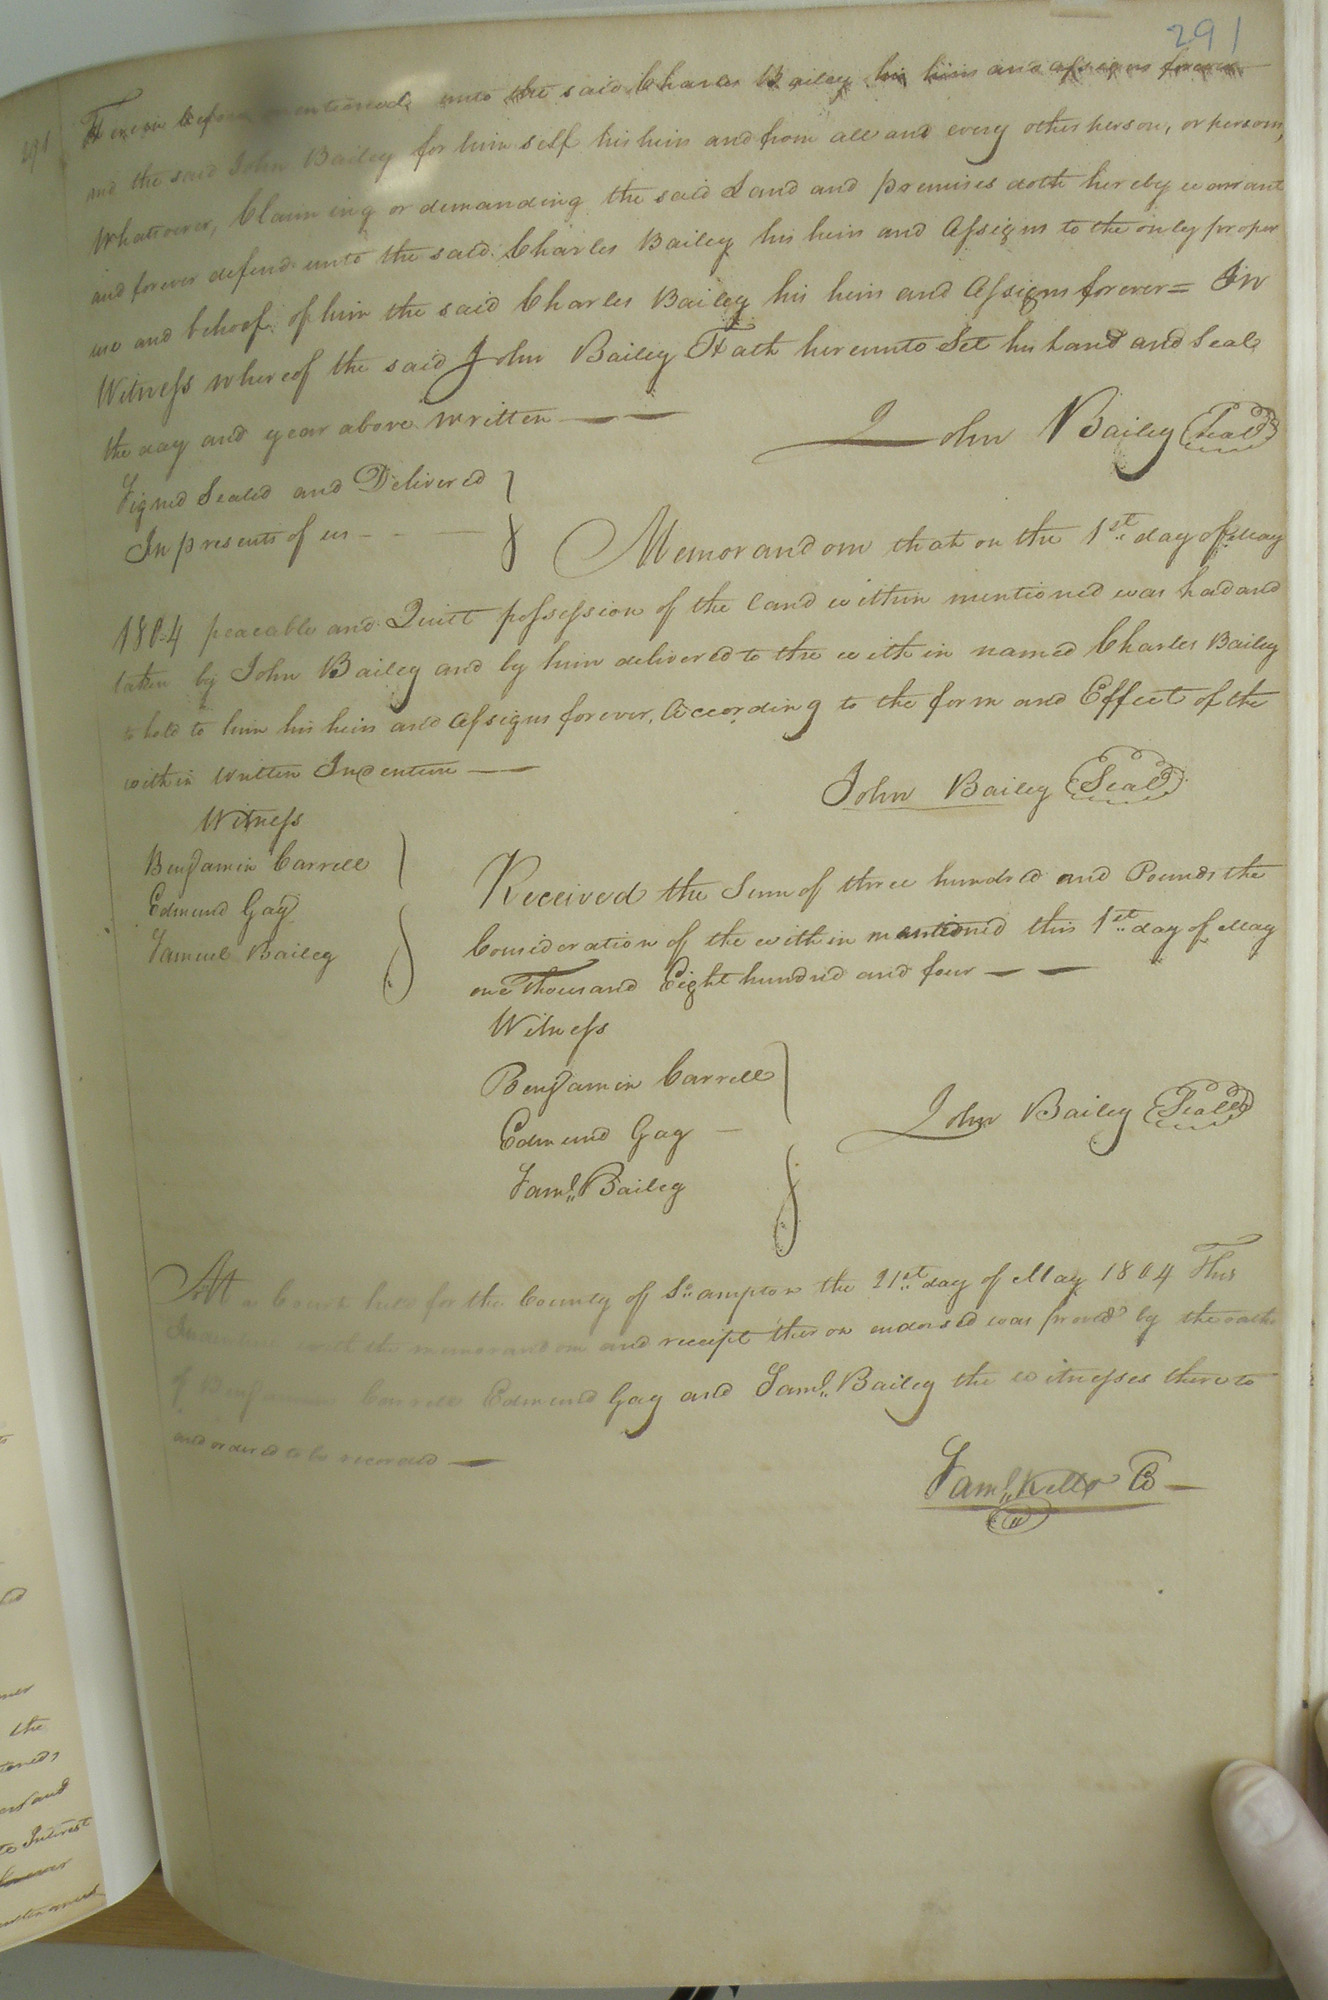 291
291
Herein before mentioned, unto the said Charles Bailey his heirs and assigns forever
and the said John Bailey for him self his heirs and from all and every other person, or persons,
whatsoever, Claiming or demanding the said Land and premises doth hereby warrant
and forever defend unto the said Charles Bailey his heirs and Assigns to the only proper
use and behoof of him the said Charles Bailey his heirs and Assigns forever = In
Witness whereof the said John Bailey Hath hereunto Set his hand and Seal
the day and year above written
John Bailey Seal
Signed Sealed and Delivered
In presents of us
Memorandom that on the 1st day of May
1804 peacable and Quiet possession of the land within mentioned was had and
taken by John Bailey and by him delivered to the with in named Charles Bailey
to hold to him his heirs and Assigns forever, According to the form and Effect of the
within written Indenture
John Bailey Seal
Witness
Benjamin Carrell
Edmund Gay
Samuel Bailey
Received the Sum of three hundred and Pounds the
Consideration of the within mentioned this 1st day of May
one Thousand Eight hundred and four
Witness
Benjamin Carrell
Edmund Gay
Saml. Bailey
John Bailey Seal
At a Court held for the County of So. ampton the 21st day of May 1804 This
Indenture with the memorandom and receipt thereon endorsed was proved by the oaths
of Benjamin Carrell Edmund Gay and Saml. Bailey the witnesses thereto
and ordered to be recorded
Saml. Kello C
the
and
to Interest